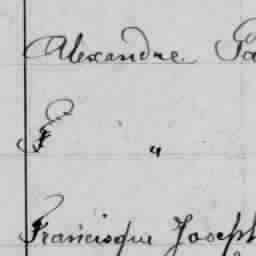 Alexandre Pa
F "
Francisque Joseph